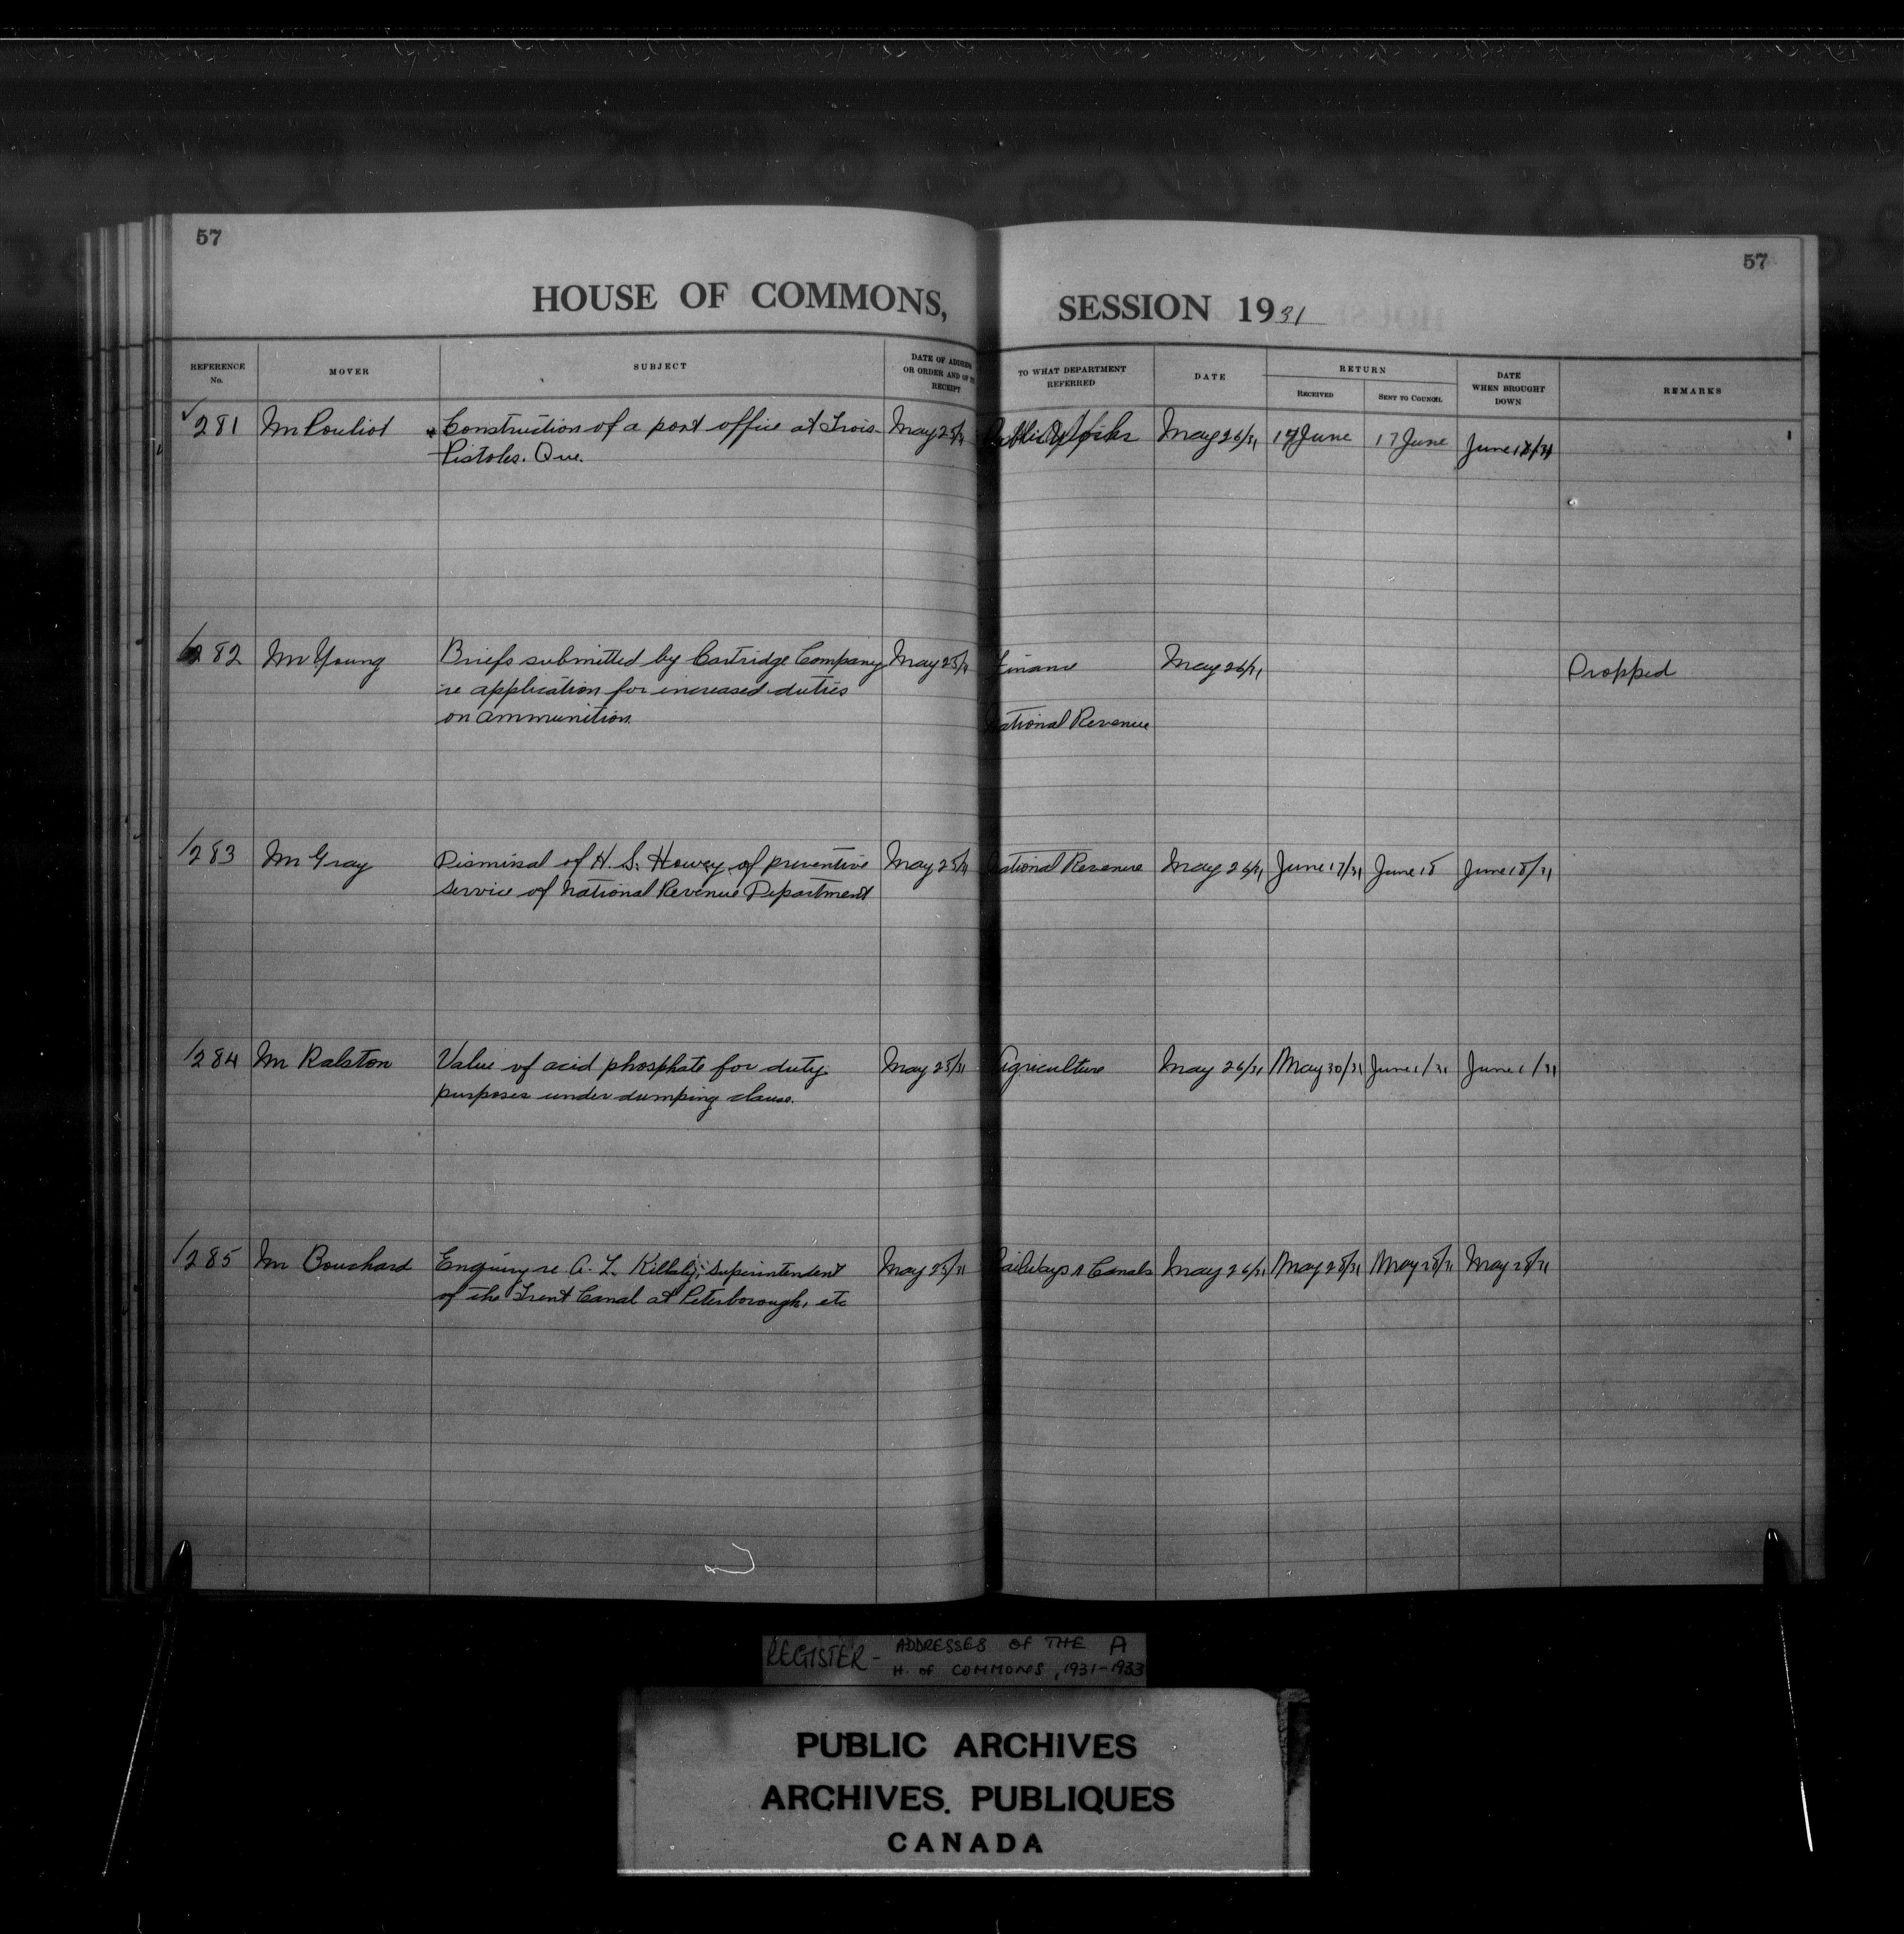 57
57
HOUSE OF COMMONS, SESSION 1931
REFERENCE No. MOVER SUBJECT DATE OF ADDRESS OR ORDER AND OF ITS RECEIPT TO WHAT DEPARTMENT REFERRED DATE RETURN RECEIVED SENT TO COUNCIL DATE WHEN BROUGHT DOWN REMARKS
281 Mr Pouliot Construction of a post office at Trois- May 25/31 Public Works May 26/31 17 June 17 June June 18/31
Pistoles. Que.
282 Mr Young Briefs submitted by Cartridge Company May 25/31 Finance May 26/31 Dropped
re application for increased duties
on ammunition National Revenue
283 Mr Gray Dismissal of H. S. Howey, of preventive May 25/31 National Revenue May 26/31 June 17/31 June 18 June 18/31
service of National Revenue Department
284 Mr Ralston Value of acid phosphate for duty May 25/31 Agriculture May 26/31 May 30/31 June 1/31 June 1/31
purposes under dumping clause.
285 Mr Bouchard Enquiry re A. L. Killaly, Superintendent May 25/31 Railways & Canals May 26/31 May 28/31 May 28/31 May 28/31
of the Trent Canal at Peterborough, etc
REGISTER - ADDRESSES OF THE A
H. OF COMMONS, 1931-1933
PUBLIC ARCHIVES
ARCHIVES. PUBLIQUES
CANADA